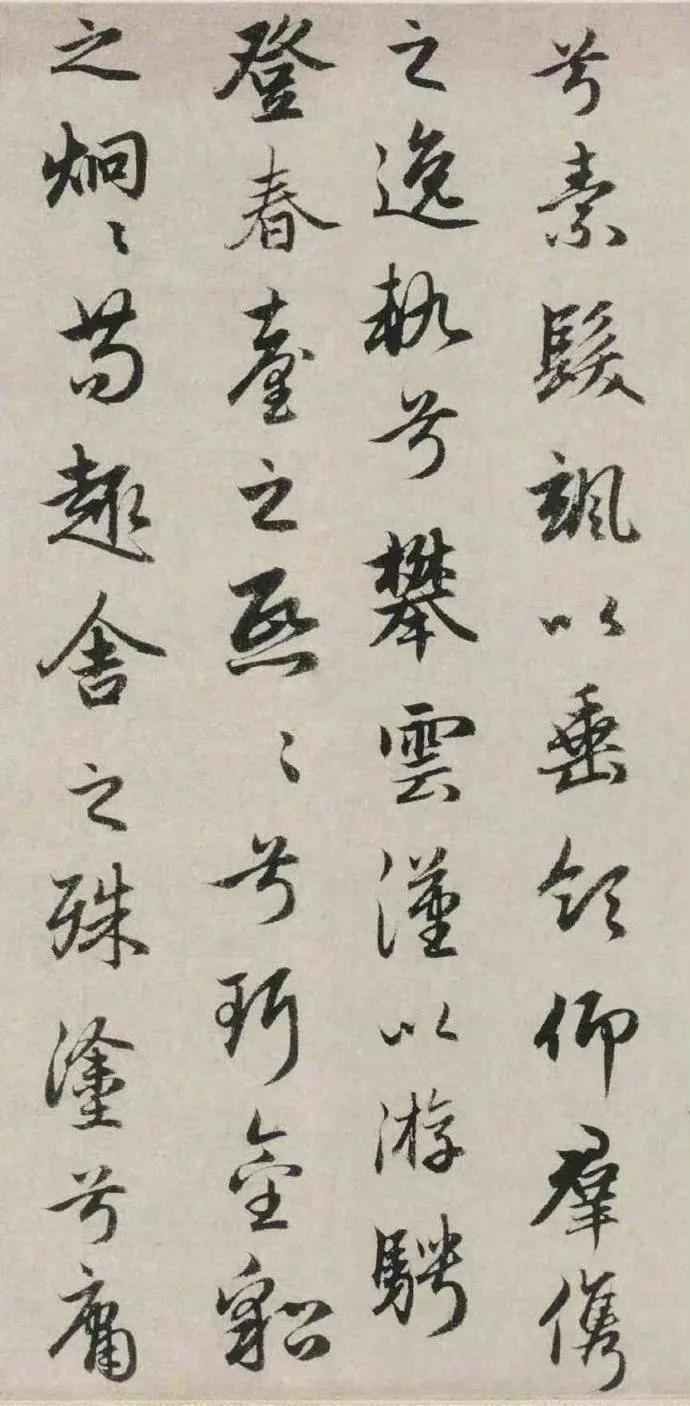 兮素髮颯以垂領仰羣儁
之逸軌兮攀雲漢以游騁
登春臺之熙〻兮珥金貂
之炯〻苟趣舍之殊塗兮庸